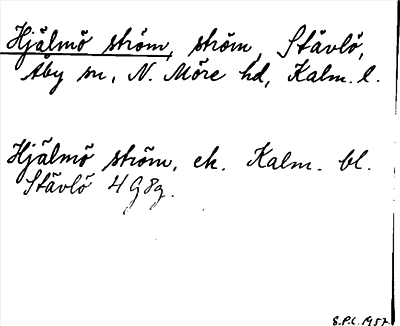 Hjälmö ström, ström, Stävlö,
Åby sn, N. Möre hd, Kalm. l.
Hjälmö ström, ek. Kalm. bl.
Stävlö 4G8g.
S.P.L. 1957